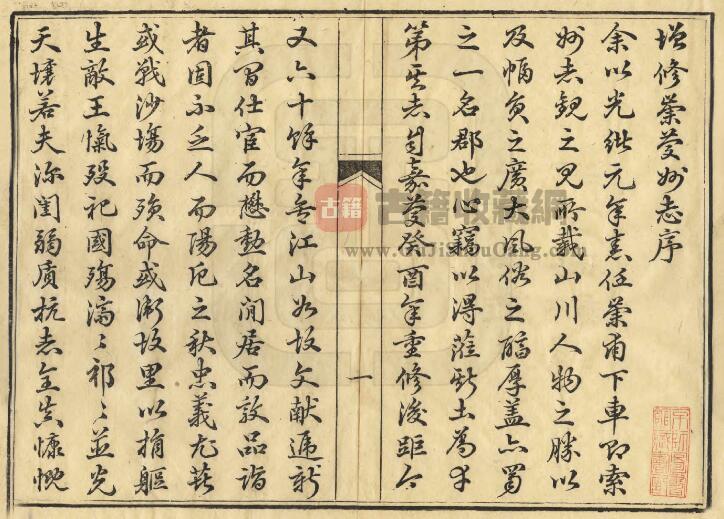 增修崇慶州志序
余以光緒元年來任崇甫下車即索
州志觀之見所載山川人物之勝以
及幅員之廣大風俗之醇厚蓋亦蜀
之一名郡也心竊以得蒞斯土為幸
第其志自嘉慶癸酉年重修後距今
又六十餘年無江山如故文獻遞新
其間仕宦而懋勳名閒居而敦品詣
者固不乏人而陽厄之秋忠義尤甚
或戰沙場而殞命或衛故里以捐軀
生敵王愾歿祀國殤濟濟祁祁並光
天壤若夫深閨弱质抗志全貞慷慨
一
古籍收藏網
www.GuJiShouCang.com